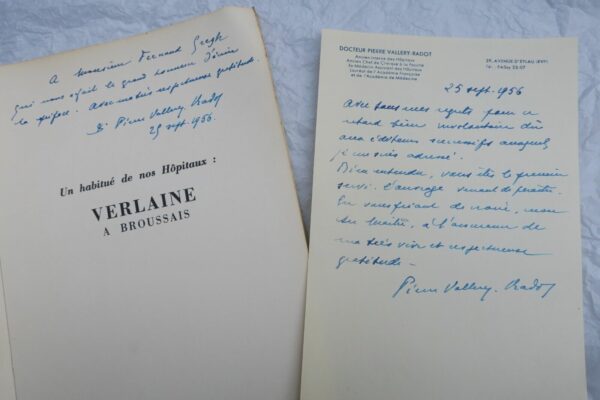 A Monsieur Fernand Gregh
qui nous a fait le grand honneur d'écrire
la préface. avec notre respectueuse gratitude.
Dr Pierre Vallery Radot
25 sept. 1956.
Un habitué de nos Hôpitaux :
VERLAINE
A BROUSSAIS
DOCTEUR PIERRE VALLERY-RADOT
Ancien Interne des Hôpitaux
Ancien Chef de Clinique à la Faculté
Ex-Médecin Assistant des Hôpitaux
Lauréat de l'Académie Française
et de l'Académie de Médecine
39, AVENUE D'EYLAU (XVIe)
25 sept. 1956
avec tous mes regrets pour ce
retard bien involontaire dû
aux éditeurs successifs auxquels
je me suis adressé.
Bien entendu, vous êtes le premier
servi. L'ouvrage vient de paraître.
En vous priant de croire, mon
cher Maître, à l'assurance de
ma très vive et respectueuse
gratitude -
Pierre Vallery-Radot